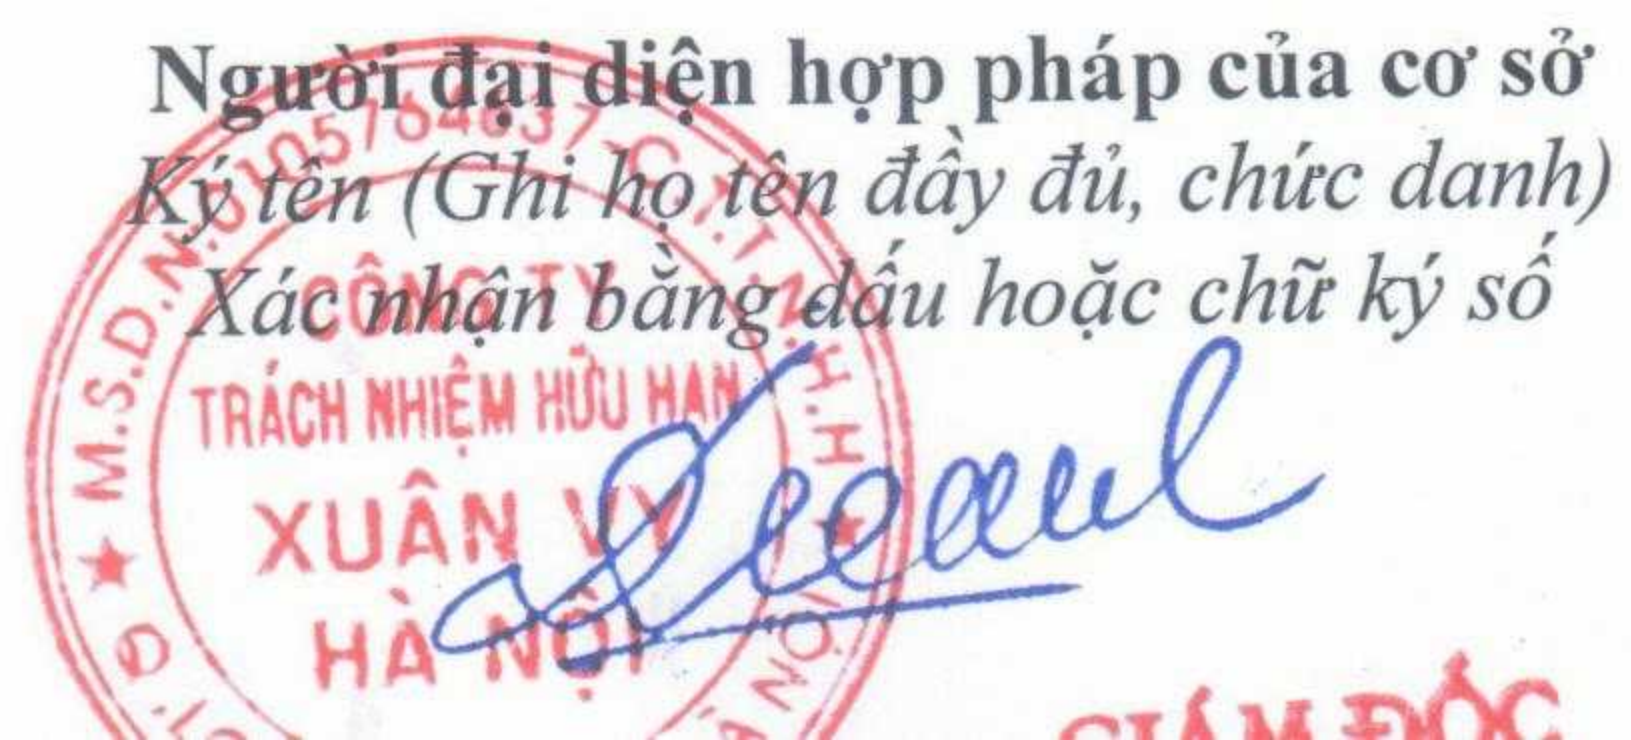 Người đại diện hợp pháp của cơ sở
Ký tên (Ghi họ tên đầy đủ, chức danh)
Xác nhận bằng dấu hoặc chữ ký số
M.S.D.N:0105764637-C.T.T.N.H.H
CÔNG TY
TRÁCH NHIỆM HỮU HẠN
XUÂN VY
HÀ NỘI
GIÁM ĐỐC